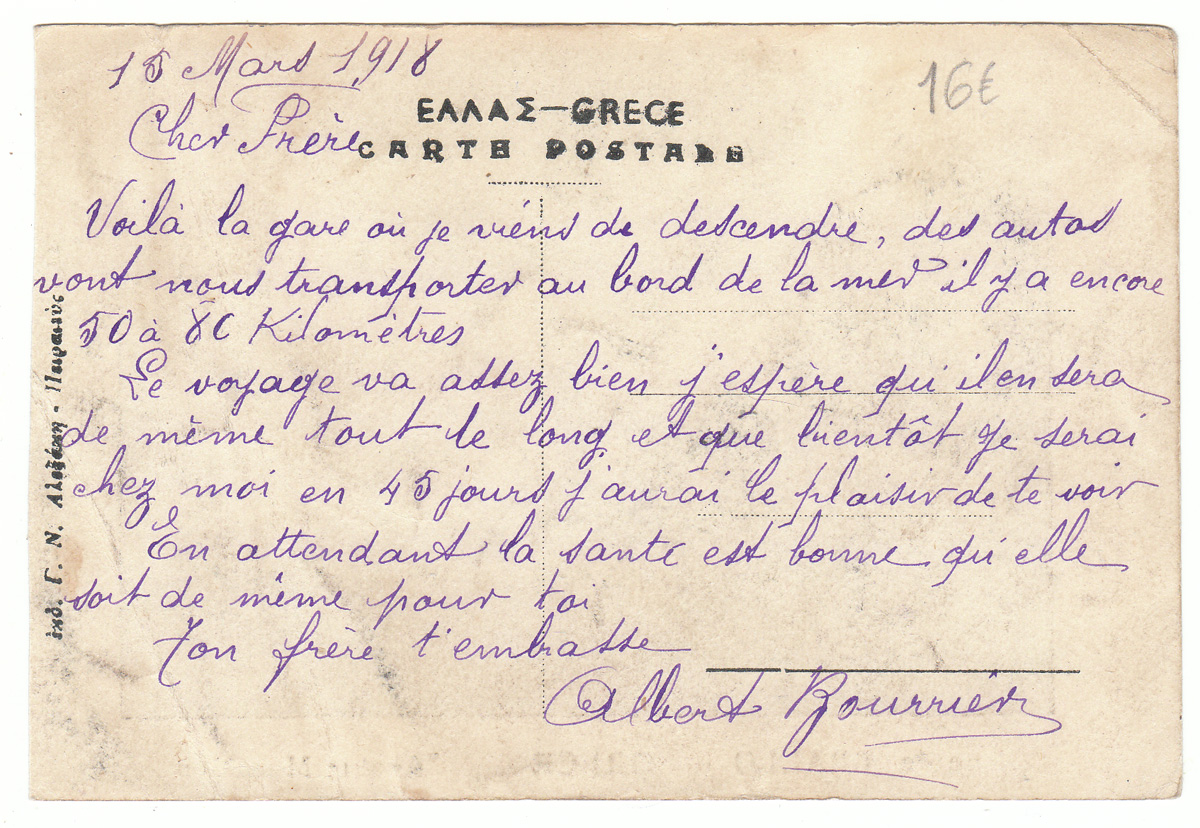 15 Mars 1918
16€
ΕΛΛΑΣ—GRECE
Cher Frère
CARTE POSTALE
Voilà la gare où je viéns de descendre, des autos
vont nous transporter au bord de la mer il y a encore
50 à 80 Kilomètres
Le voyage va assez bien j'espère qu'il en sera
de même tout le long et que bientôt je serai
chez moi en 45 jours j'aurai le plaisir de te voir
En attendant la santé est bonne qu'elle
soit de même pour toi
Ton frère t'embrasse
Albert Bourriér
ἐκδ. Γ. Ν. Ἀλεξάκη - Πειραιεύς